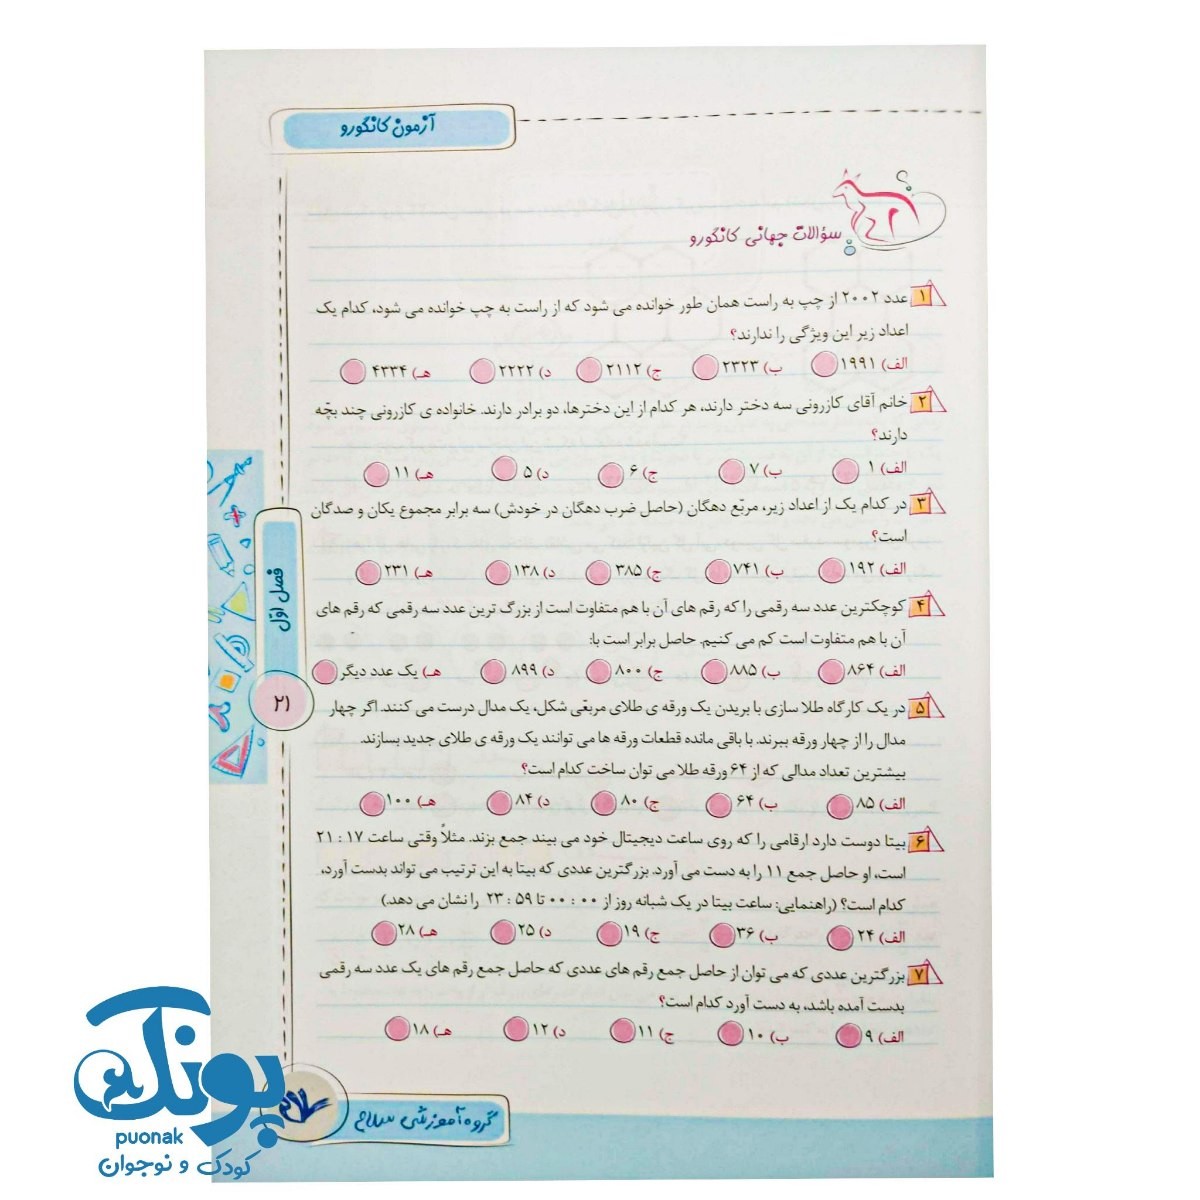 آزمون کانگورو
سؤالات جهانی کانگورو
۱ عدد ۲۰۰۲ از چپ به راست همان طور خوانده می شود که از راست به چپ خوانده می شود، کدام یک
اعداد زیر این ویژگی را ندارند؟
الف) ۱۹۹۱ ب) ۲۳۲۳ ج) ۲۱۱۲ د) ۲۲۲۲ هـ) ۴۳۳۴
۲ خانم آقای کازرونی سه دختر دارند، هر کدام از این دخترها، دو برادر دارند. خانواده ی کازرونی چند بچّه
دارند؟
الف) ۱ ب) ۷ ج) ۶ د) ۵ هـ) ۱۱
۳ در کدام یک از اعداد زیر، مربّع دهگان (حاصل ضرب دهگان در خودش) سه برابر مجموع یکان و صدگان
است؟
الف) ۱۹۲ ب) ۷۴۱ ج) ۳۸۵ د) ۱۳۸ هـ) ۲۳۱
۴ کوچکترین عدد سه رقمی را که رقم های آن با هم متفاوت است از بزرگ ترین عدد سه رقمی که رقم های
آن با هم متفاوت است کم می کنیم. حاصل برابر است با:
الف) ۸۶۴ ب) ۸۸۵ ج) ۸۰۰ د) ۸۹۹ هـ) یک عدد دیگر
۵ در یک کارگاه طلا سازی با بریدن یک ورقه ی طلای مربعّی شکل، یک مدال درست می کنند. اگر چهار
مدال را از چهار ورقه ببرند. با باقی مانده قطعات ورقه ها می توانند یک ورقه ی طلای جدید بسازند.
بیشترین تعداد مدالی که از ۶۴ ورقه طلا می توان ساخت کدام است؟
الف) ۸۵ ب) ۶۴ ج) ۸۰ د) ۸۴ هـ) ۱۰۰
۶ بیتا دوست دارد ارقامی را که روی ساعت دیجیتال خود می بیند جمع بزند. مثلاً وقتی ساعت ۱۷ : ۲۱
است، او حاصل جمع ۱۱ را به دست می آورد. بزرگترین عددی که بیتا به این ترتیب می تواند بدست آورد،
کدام است؟ (راهنمایی: ساعت بیتا در یک شبانه روز از ۰۰ : ۰۰ تا ۵۹ : ۲۳ را نشان می دهد.)
الف) ۲۴ ب) ۳۶ ج) ۱۹ د) ۲۵ هـ) ۲۸
۷ بزرگترین عددی که می توان از حاصل جمع رقم های عددی که حاصل جمع رقم های یک عدد سه رقمی
بدست آمده باشد، به دست آورد کدام است؟
الف) ۹ ب) ۱۰ ج) ۱۱ د) ۱۲ هـ) ۱۸
فصل اوّل
۲۱
گروه آموزشی سلاح
پونک
puonak
کودک و نوجوان